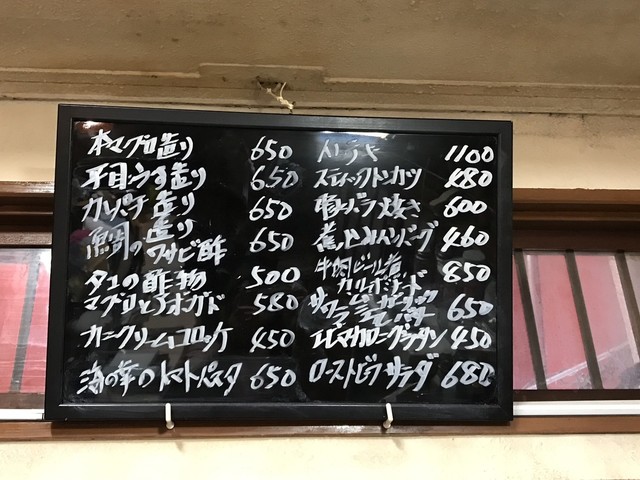 本マグロ造り 650
平目うす造り 650
カンパチ造り 650
鯛の造り ワサビ酢 650
タコの酢物 500
マグロとアボガド 580
カニクリームコロッケ 450
海の幸のトマトパスタ 650
1100
スティックトンカツ 480
バラ焼き 600
煮込みハンバーグ 460
牛肉ビール煮 850
サワラ ガーリックバター 650
エビマカロニグラタン 450
ローストビーフサラダ 680